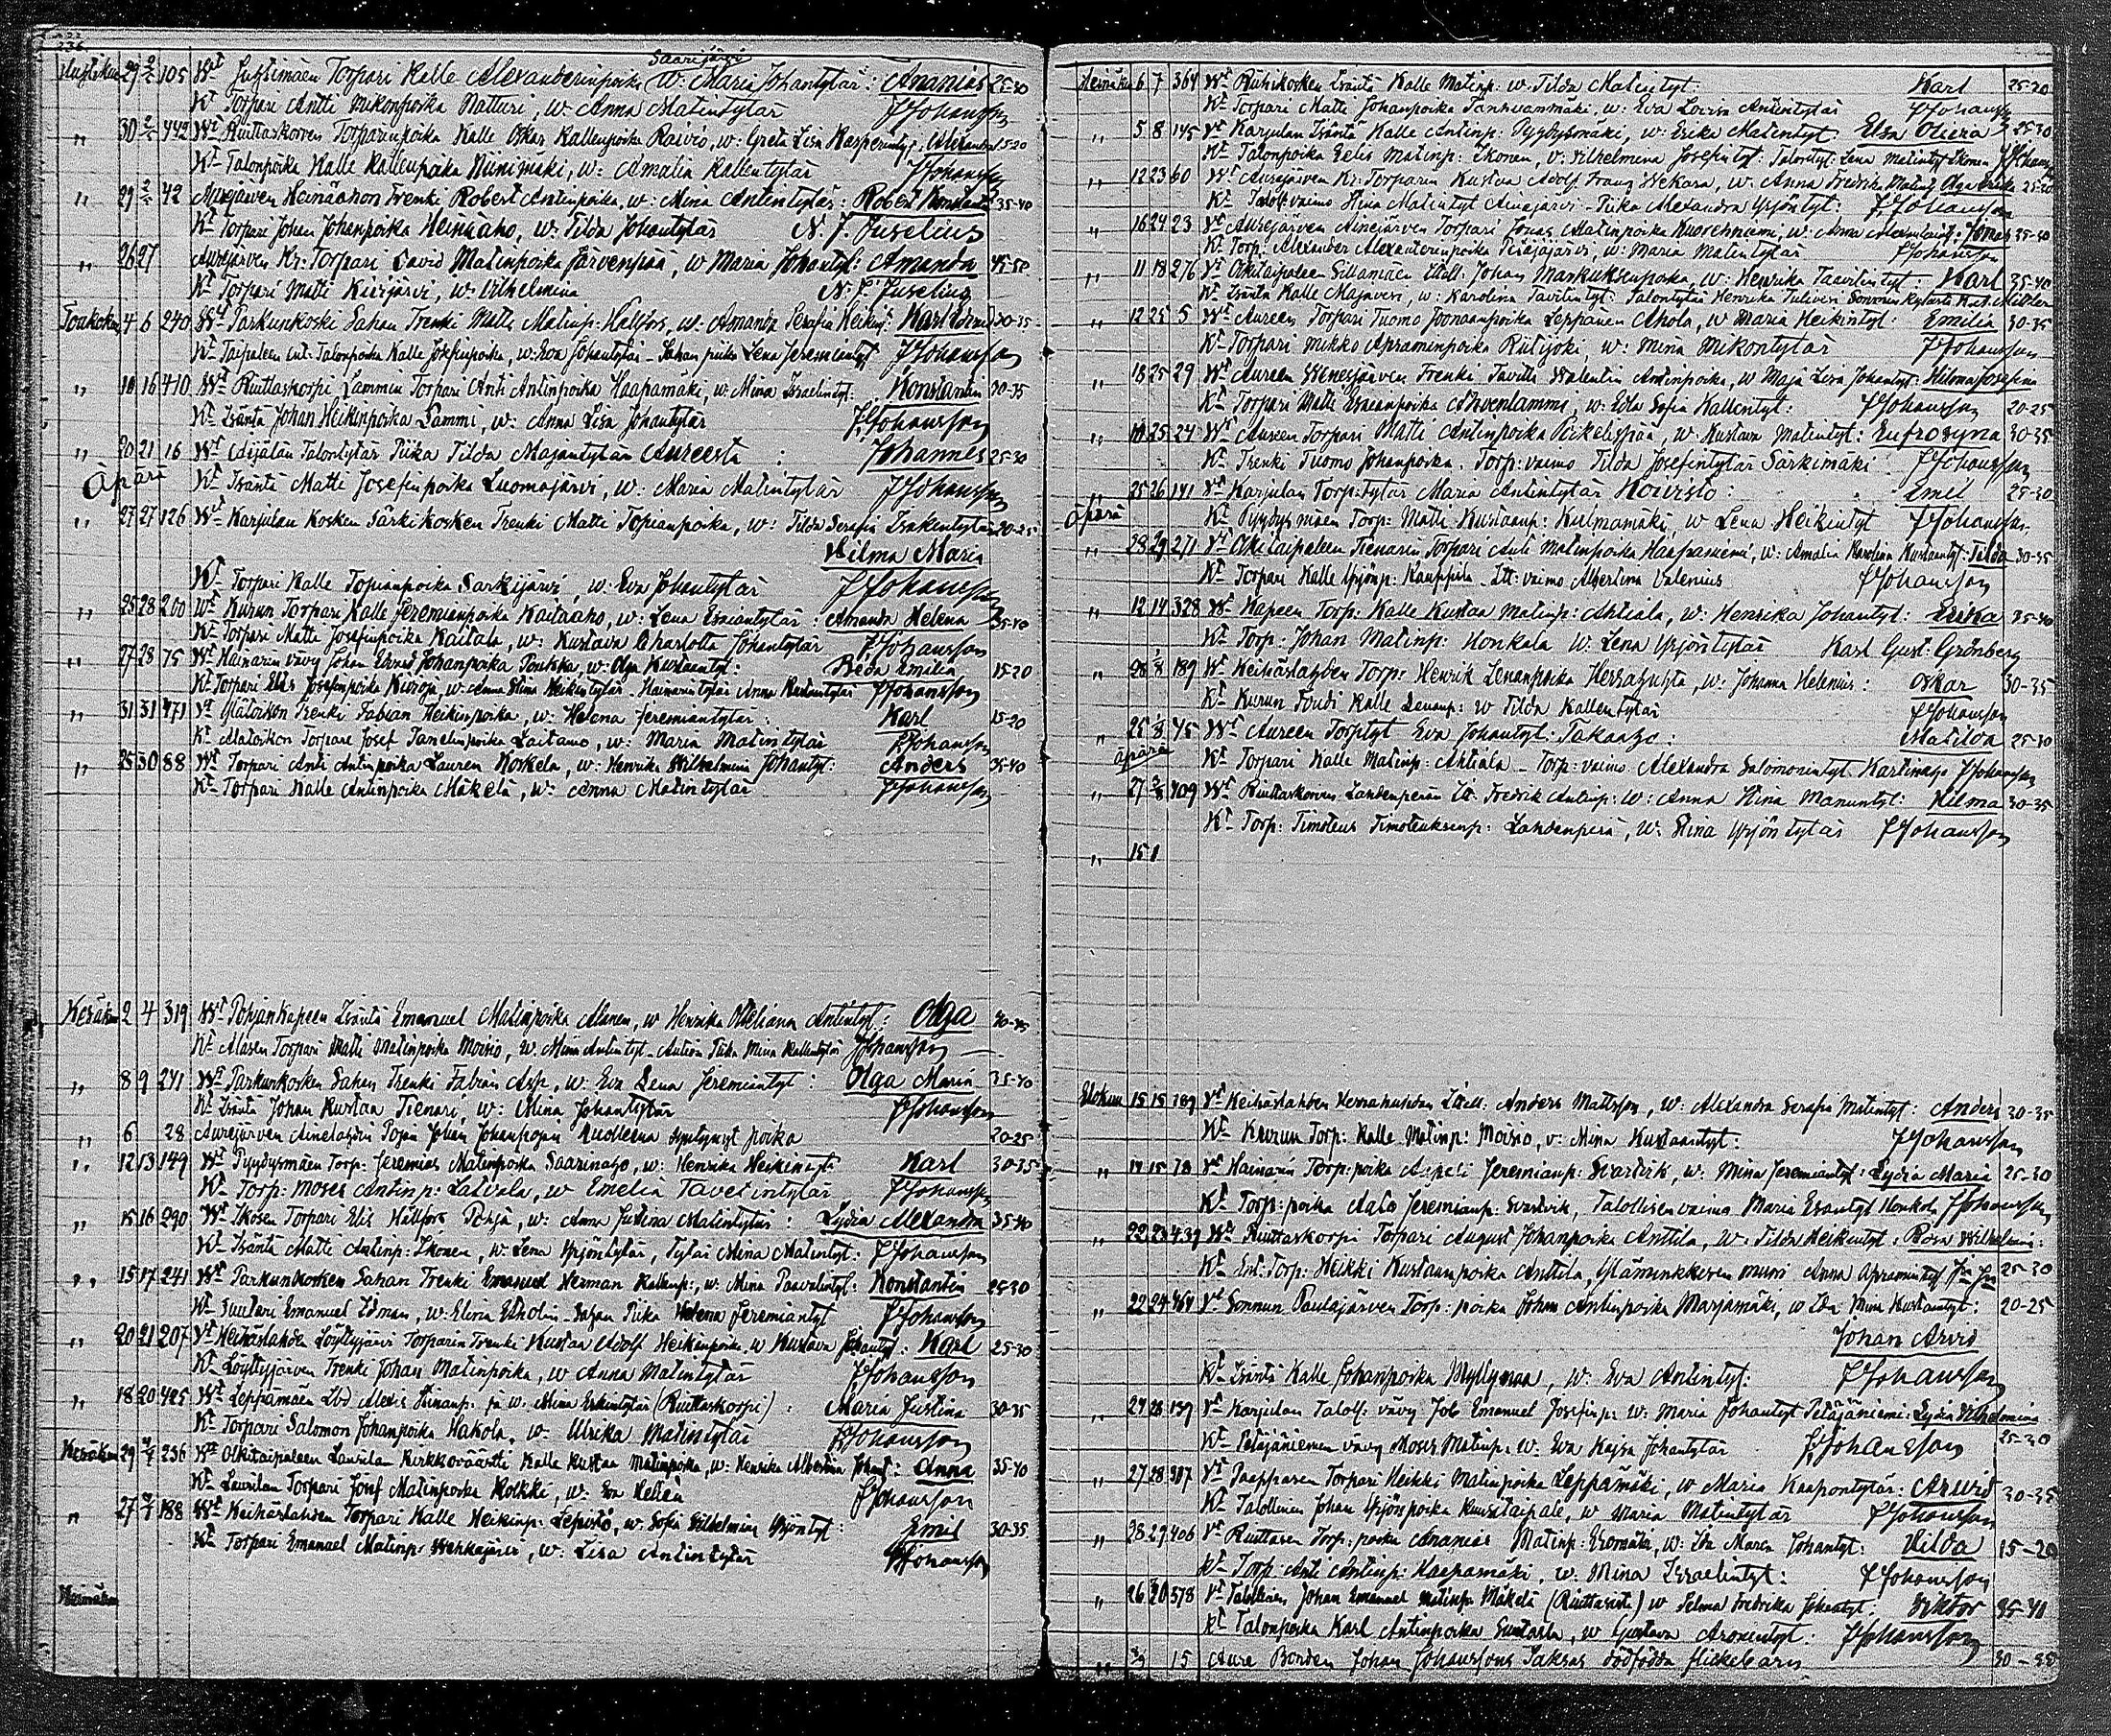 Saarijärvi
Huhtikuu 29 2/5 105 Wt Torpari Kalle Alexanderinpoika W: Maria Johantytär: Ananias 25-30
Kt Torpari Antti Mikonpoika Natturi, w: Anna Matintytär JJohansson
" 30 2/5 442 Wt Riuttaskorven Torparinpoika Kalle Oskar Kallenpoika Raivio, w: Greta Lisa Kasperintyt: 15-20
Kt Talonpoika Kalle Kallenpoika Niinimäki, w: Amalia Kallentytär JJohansson
" 29 2/5 42 Aurejärven Heinäahon Trenki Robert Antinpoika, w: Mina Antintytär: Robert Konstantin 35-40
Kt Torpari Johan Johanpoika Heinäaho, w: Tilda Johantytär N. J. Juselius
" 26 27 Aurejärven Kr: Torpari David Matinpoika Järvenpää, w Maria Johantyt: Amanda 45-50
Kt Torpari Matti Kivijärvi, w: Wilhelmina N. J. Juselius
Toukokuu 4 6 240 Wt Parkunkoski Sahan Trenki Matti Matinp: Hallfors, w: Amanda Serafia Heikint: Karl 30-35
Kt Taipaleen ent. Talonpoika Kalle Josefinpoika, w: Eva Johantytär - Sahan piika Lena Jeremiantyt JJohansson
" 10 16 410 Wt Riuttaskorpi Lammin Torpari Anti Antinpoika Haapamäki, w: Mina Israelintyt: Konstantin 30-35
Kt Isäntä Johan Heikinpoika Lammi, w: Anna Lisa Johantytär JJohansson
" 20 21 16 Wt Äijälän Talontytär Piika Tilda Majantytär Aureesta: Johannes 25-30
Äpärä Kt Isäntä Matti Josefinpoika Luomajärvi, w: Maria Matintytär JJohansson
" 27 27 126 Wt Karjulan Kosken Särkikosken Trenki Matti Topianpoika, w: Tilda Serafia Isakintytär 20-25
Hilma Maria
Kt Torpari Kalle Topianpoika Särkijärvi, w: Eva Johantytär JJohansson
" 25 28 200 Wt Kurun Torpari Kalle Jeremianpoika Kaitaaho, w: Lena Esaiantytär: Amanda Helena 35-40
Kt Torpari Matti Josefinpoika Kaitala, w: Kustava Charlotta Johantytär JJohansson
" 27 28 75 Wt Hainarin vävy Johan Edvard Johanpoika Poukka, w: Olga Kustaantyt: Beda Emilia 15-20
Kt Torpari Elis Josefinpoika Kivioja, w: Anna Stina Heikintytär - Hainarin tytär Anna JJohansson
" 31 31 471 Trenki Fabian Heikinpoika, w: Helena Jeremiantytär: Karl 15-20
Kt Torpari Josef Tanelinpoika Laitamo, w: Maria Matintytär JJohansson
" 25 30 88 Wt Torpari Anti Antinpoika Lauren Koskela, w: Henrika Wilhelmina Johantyt: Anders 35-40
Kt Torpari Kalle Antinpoika Mäkelä, w: Anna Matintytär JJohansson
Kesäkuu 2 4 319 Wt Pohjankapeen Isäntä Emanuel Matinpoika Alanen, w Henrika Otteliana Antintyt: Olga 40-45
Kt Alasen Torpari Matti Matinpoika Moisio, w: Mina Antintyt - Piika Mina Kallentytär JJohansson
" 8 9 241 Wt Parkunkosken Sahan Trenki Fabian Asp, w: Eva Lena Jeremiantyt: Olga Maria 35-40
Kt Isäntä Johan Kustaa Tienari, w: Mina Johantytär JJohansson
" 6 28 Aurejärven Ainelahdin Pojan Johan Johanpojan kuolleena syntynyt poika 20-25
" 12 13 149 Wt Pyydysmäen Torp: Jeremias Matinpoika Saarinaho, w: Henrika Heikintyt: Karl 30-35
Kt Torp: Moses Antinp: Latvala, w Emelia Tavetintytär JJohansson
" 15 16 290 Wt Ikosen Torpari Elis Hällfors Pohja, w: Anna Justina Matintytär: Lydia Alexandra 35-40
Kt Isäntä Matti Antinp: Ikonen, w: Lena Yrjöntytär, Tytär Mina Matintyt: JJohansson
" 15 17 241 Wt Parkunkosken Sahan Trenki Emanuel Herman Kallenp:, w: Mina Paavalintyt: Konstantin 25-30
Kt Suutari Emanuel Idman, w: Elena Ekholin - Sahan Piika Helena Jeremiantyt JJohansson
" 20 21 207 Wt Keihäslahden Löyttyjärvi Torparin Trenki Kustaa Adolf Heikinpoika, w Kustava Johantyt: Karl 25-30
Kt Löyttyjärven Trenki Johan Matinpoika, w Anna Matintytär JJohansson
" 18 20 425 Wt Leppämäen Alexis w: Mina Erkintytär (Riuttaskorpi): Maria Justina 30-35
Kt Torpari Salomon Johanpoika Hakola, w: Ulrika Matintytär JJohansson
Kesäkuu 29 236 Wt Olkitaipaleen Laurilan Kirkkoväärti Kalle Kustaa Matinpoika, w: Henrika Albertina Johant: Anna 35-40
Kt Laurilan Torpari Josef Matinpoika Kolkki, w: Eva Helena JJohansson
" 27 188 Wt Keihäslahden Torpari Kalle Heikinp: Lepistö, w: Sofia Wilhelmina Yrjöntyt: Emil 30-35
Kt Torpari Emanuel Matinp: Wehkajärvi, w: Lisa Antintytär JJohansson
Heinäkuu
Heinäku 6 7 364 Wt Riuhikosken Isäntä Kalle Matinp: w: Tilda Matintyt: Karl 25-20
Kt Torpari Matti Johanpoika w: Eva Lovisa Antintytär JJohansson
" 5 8 145 Wt Karjulan Isäntä Kalle Antinp: Pyydysmäki, w: Erika Matintyt: Elsa 25-30
Kt Talonpoika Eelis Matinp: Ikonen, w: Vilhelmina Josefintyt: Talontyt: Lena Matintyt Ikonen JJohansson
" 12 23 60 Wt Aurejärven Kr: Torparin Kustaa Adolf Franz Wekara, w: Anna Fredrika Matintyt Olga 25-30
Kt Talol: vaimo Stina Matintyt Aurejärvi - Piika Alexandra Yrjöntyt: JJohansson
" 16 24 23 Wt Aurejärven Ainejärven Torpari Jonas Matinpoika Kuorehniemi, w: Anna Jonas 35-40
Kt Torp: Alexander Alexanterinpoika Pitejäjärvi, w: Maria Matintytär JJohansson
" 11 18 276 Wt Olkitaipaleen Sillanmäen Itsell: Johan Markuksenpoika, w: Henrika Taavitintyt: Karl 35-40
Kt Isäntä Kalle w: Karolina Tavitintyt: Talontytär Henrika
" 12 25 5 Wt Aureen Torpari Tuomo Joonaanpoika Leppänen Ahola, w Maria Heikintyt: Emilia 30-35
Kt Torpari Mikko Apraminpoika Riitijoki, w: Mina Mikontytär JJohansson
" 18 25 29 Wt Aureen Trenki Valentin Antinpoika, w Maja Lisa Johantyt: Hilma Josefina
Kt Torpari Matti Esaianpoika w: Edla Sofia Kallentyt: JJohansson 20-25
" 10 25 24 Wt Aureen Torpari Matti Antinpoika Poikelispää, w: Kustava Matintyt: Eufrosyna 30-35
Kt Trenki Tuomo Johanpoika. Torp: vaimo Tilda Josefintytär Särkimäki JJohansson
" 25 26 141 Wt Karjulan Torp: tytär Maria Antintytär Koivisto: Emil 25-30
Äpärä Kt Pyydysmäen Torp: Matti Kustaanp: Kulmamäki, w Lena Heikintyt JJohansson
" 28 29 271 Wt Olkitaipaleen Tienarin Torpari Anti Matinpoika Haapaniemi, w: Amalia Karolina Kustaantyt: Tilda 30-35
Kt Torpari Kalle Yrjönp: Kauppila - Itt: vaimo Albertina Valenius JJohansson
" 12 14 328 Wt Kapeen Torp: Kalle Kustaa Matinp: Ahtiala, w: Henrika Johantyt: Erika 35-40
Kt Torp: Johan Matinp: Honkala W: Lena Yrjöntytär Karl Gust. Grönberg
" 28 1/8 189 Wt Keihäslahden Torp: Henrik Leenanpoika Herrahuhta, w: Johanna Helenius: Oskar 30-35
Kt Kurun Kalle w Tilda Kallentytär JJohansson
" 25 1/8 45 Wt Aureen Torptyt Eva Johantyt: Takaaho: Matilda 25-30
Äpärä Kt Torpari Kalle Matinp: Ahtiala - Torp: vaimo Alexandra Salomonintyt JJohansson
" 27 2/8 409 Wt Riuttaskorven Lahdenperän Itt: Fredrik Antinp: w: Anna Stina Manuntyt: Hilma 30-35
Kt Torp: Timoteus Timoteuksenp: Lahdenperä, w: Stina Yrjöntytär JJohansson
" 15 1
Elokuu 15 15 189 Wt Keihäslahden Itsell: Anders Mattsson, w: Alexandra Serafia Matintyt: Anders 30-35
Kt Kurun Torp: Kalle Matinp: Moisio, w: Mina Kustaantyt: JJohansson
" 14 15 78 Wt Hainarin Torp: poika Aapeli Jeremianp: Svartvik, w: Mina Jeremiantyt: Lydia Maria 25-30
Kt Torp: poika Aato Jeremianp: Svartvik, Talollisen vaimo Maria Esantyt Honkola JJohansson
" 22 23 439 Wt Riuttaskorpi Torpari August Johanpoika Anttila, w: Tilda Heikintyt: Rosa Wilhelmina:
Kt Ent: Torp: Heikki Kustaanpoika Anttila, muori Anna Apramintyt 25-30
" 22 24 464 Wt Sonnun Paulajärven Torp: poika Johan Antinpoika Marjamäki, w Ida Mina Kustaantyt: 20-25
Johan Arvid
Kt Isäntä Kalle Johanpoika Myllymaa, w: Eva Antintyt: JJohansson
" 27 28 139 Wt Karjulan Talol: vävy Job Emanuel Josefinp: w: Maria Johantyt Petäjäniemi: Lydia Vilhelmina
Kt Petäjäniemen vävy Moses Matinp: w: Eva Kajsa Johantytär JJohansson 25-30
" 27 28 387 Wt Paapasen Torpari Heikki Matinpoika Leppämäki, w Maria Kaapontytär: Arvid 30-35
Kt Talollinen Johan Yrjönpoika Kuusitaipale, w Maria Matintytär JJohansson
" 28 29 406 Wt Riuttasen Torp: poika Ananias Matinp: w: Ida Maria Johantyt: Hilda 15-20
Kt Torp: Anti Antinp: Haapamäki, w: Mina Israelintyt: JJohansson
" 26 30 578 Wt Talollinen Johan Emanuel Matinp: Mäkelä w Selma Fredrika Johantyt: Viktor 35-40
Kt Talonpoika Karl Antinpoika w Gustava Aronentyt: JJohansson
" 2/9 15 Aure Bonden Johan Johanssons Taksas dödfödda flickebarn 30-35